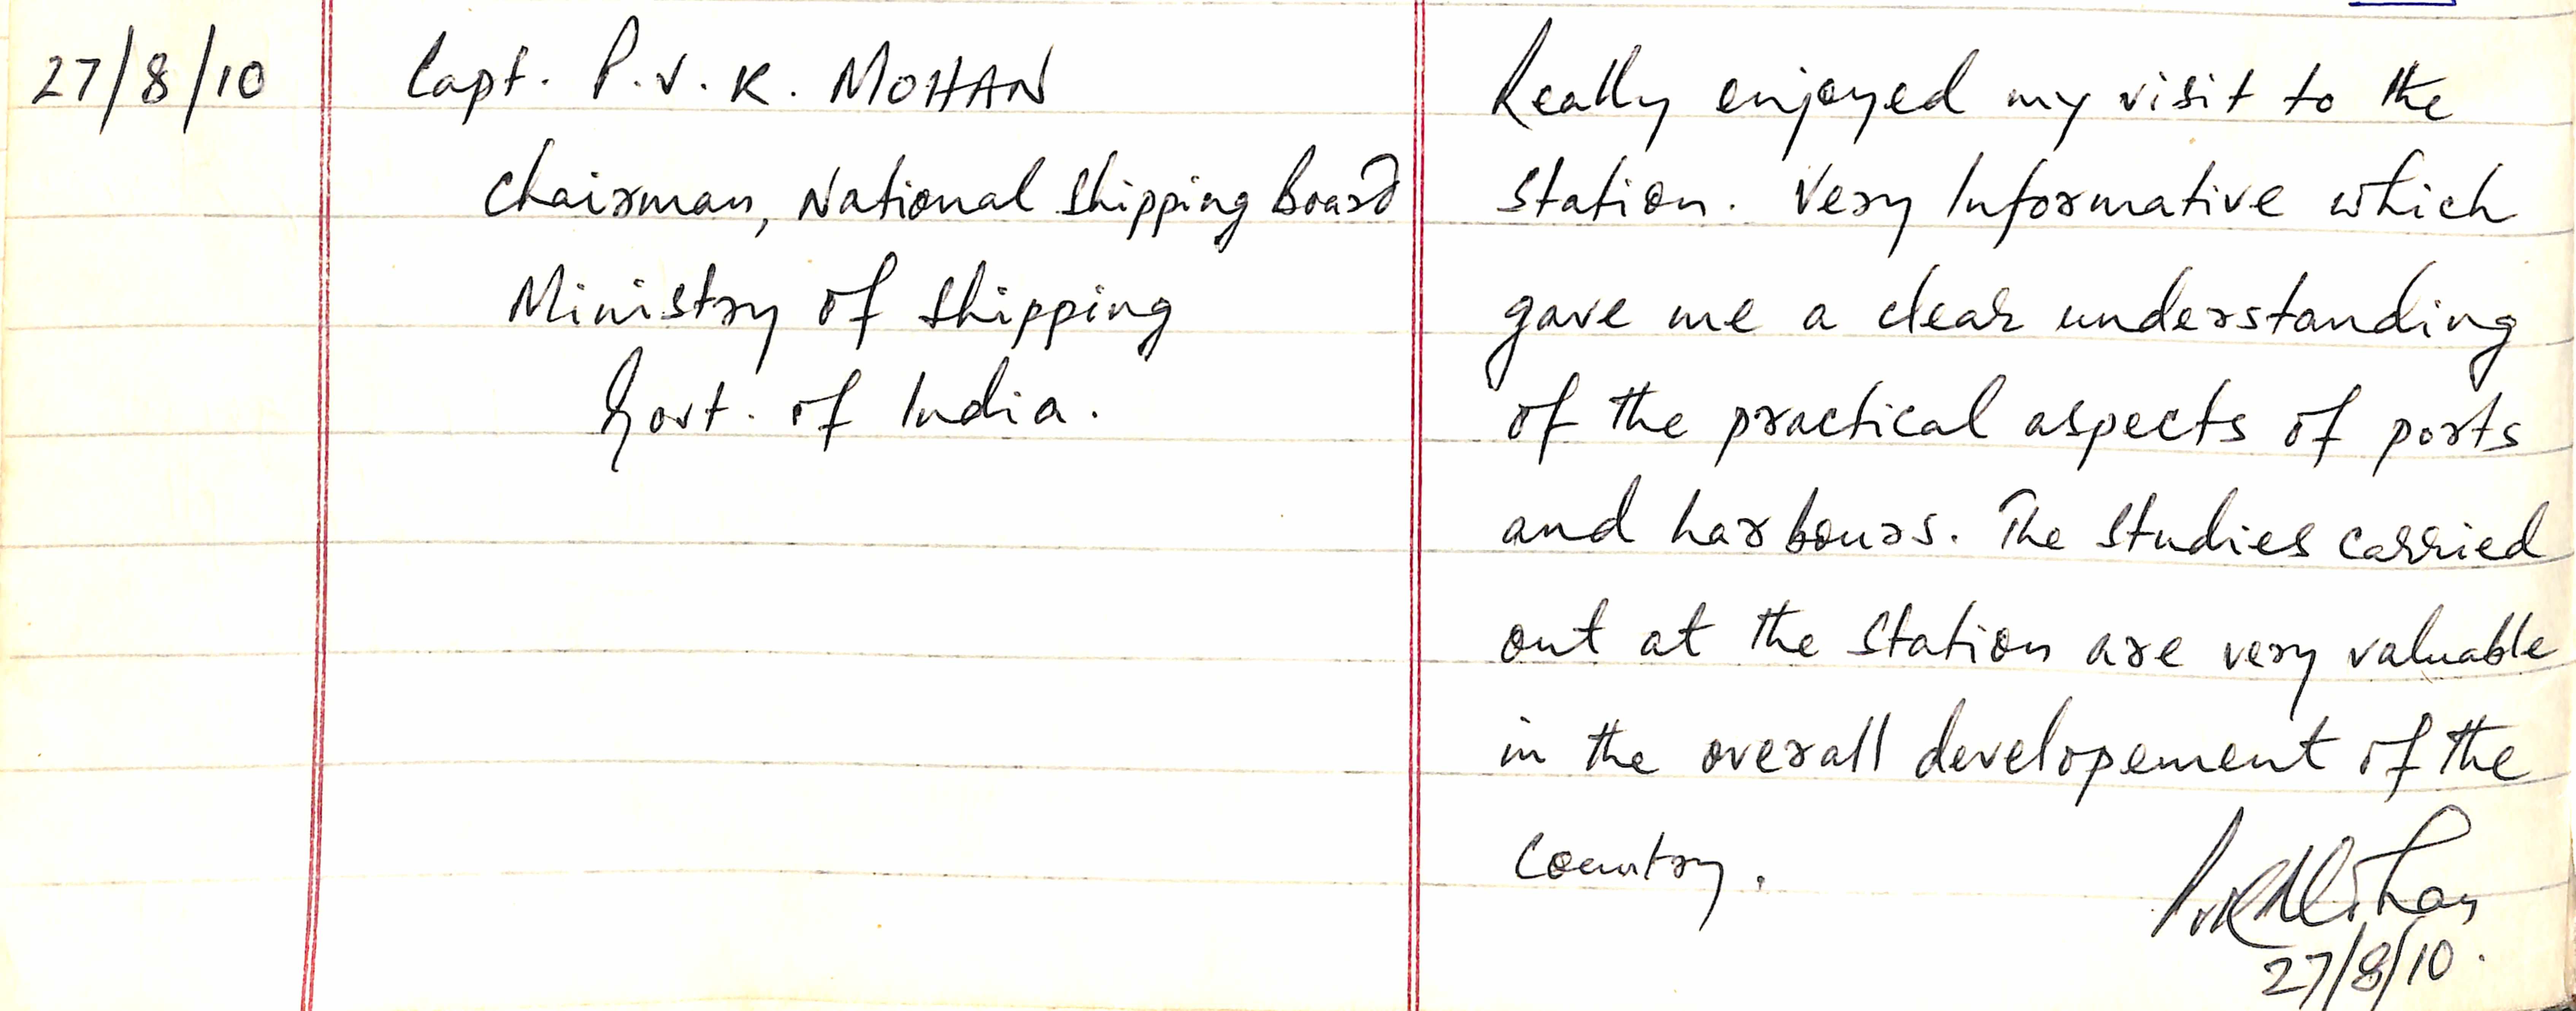 27/8/10
Capt. P.V.K. MOHAN
Chairman, National Shipping Board
Ministry of Shipping
Govt. of India.
Really enjoyed my visit to the
station. Very Informative which
gave me a clear understanding
of the practical aspects of ports
and harbours. The studies carried
out at the station are very valuable
in the overall developement of the
Country.
PVKMohan
27/8/10.